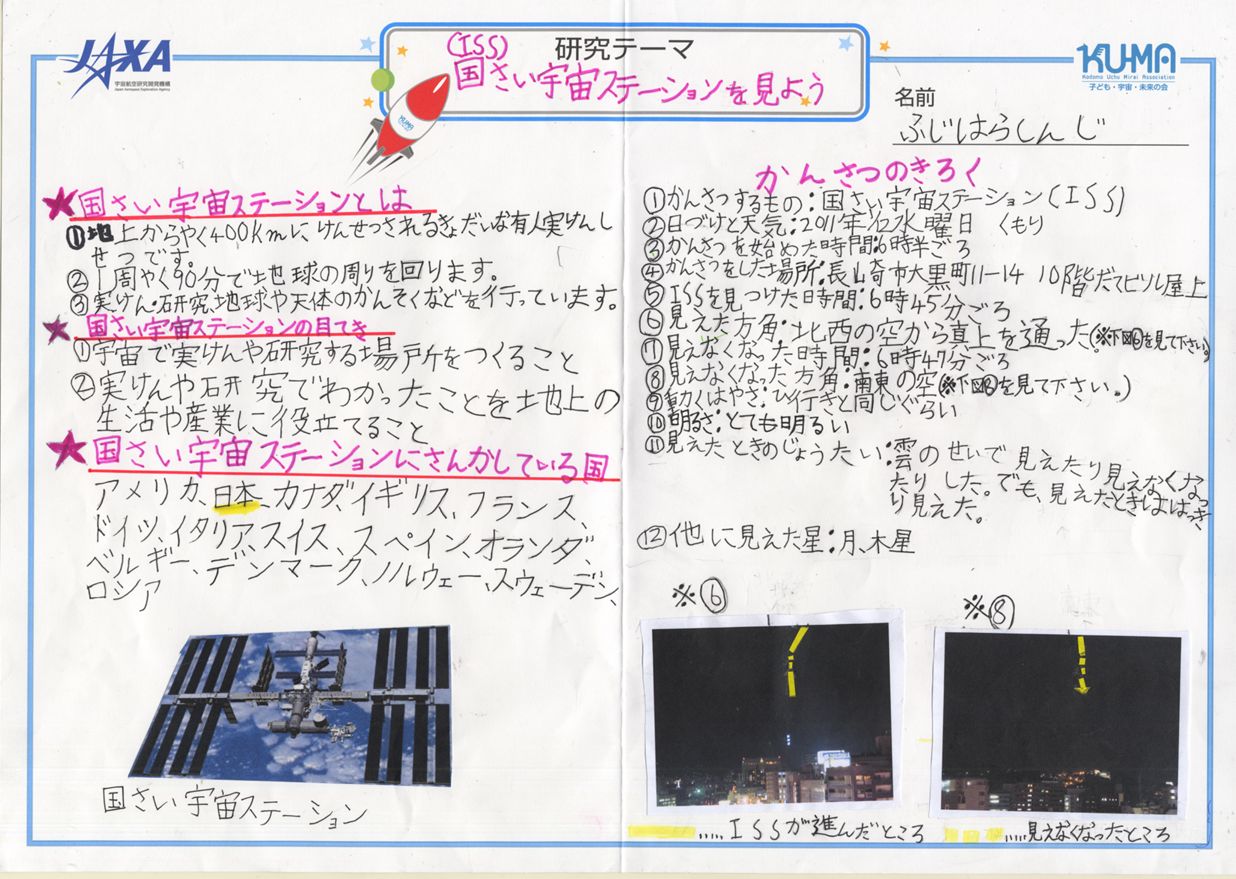 JAXA
宇宙航空研究開発機構
Japan Aerospace Exploration Agency
(ISS)
研究テーマ
国さい宇宙ステーションを見よう
KUMA
KUMA
Kodomo Uchu Mirai Association
子ども・宇宙・未来の会
名前
ふじはらしんじ
★国さい宇宙ステーションとは
①地上からやく400kmに、けんせつされるきょだいな有人実けんし
せつです。
②1周やく90分で地球の周りを回ります。
③実けん・研究、地球や天体のかんそくなどを行っています。
★国さい宇宙ステーションの目てき
①宇宙で実けんや研究する場所をつくること
②実けんや研究でわかったことを地上の
生活や産業に役立てること
★国さい宇宙ステーションにさんかしている国
アメリカ、日本、カナダ、イギリス、フランス、
ドイツ、イタリア、スイス、スペイン、オランダ、
ベルギー、デンマーク、ノルウェー、スウェーデン、
ロシア
国さい宇宙ステーション
かんさつのきろく
①かんさつするもの:国さい宇宙ステーション(ISS)
②日づけと天気:2011年 水曜日 くもり
③かんさつを始めた時間:6時半ごろ
④かんさつをした場所:長崎市大黒町11-14 10階だてビル屋上
⑤ISSを見つけた時間:6時45分ごろ
⑥見えた方角:北西の空から真上を通った(※下図⑥を見て下さい。)
⑦見えなくなった時間:6時47分ごろ
⑧見えなくなった方角:南東の空(※下図⑧を見て下さい。)
⑨動くはやさ:ひ行きと同じぐらい
⑩明るさ:とても明るい
⑪見えたときのじょうたい:雲のせいで見えたり見えなくなっ
たりした。でも、見えたときははっき
り見えた。
⑫他に見えた星:月、木星
※⑥
※⑧
.....ISSが進んだところ
.....見えなくなったところ